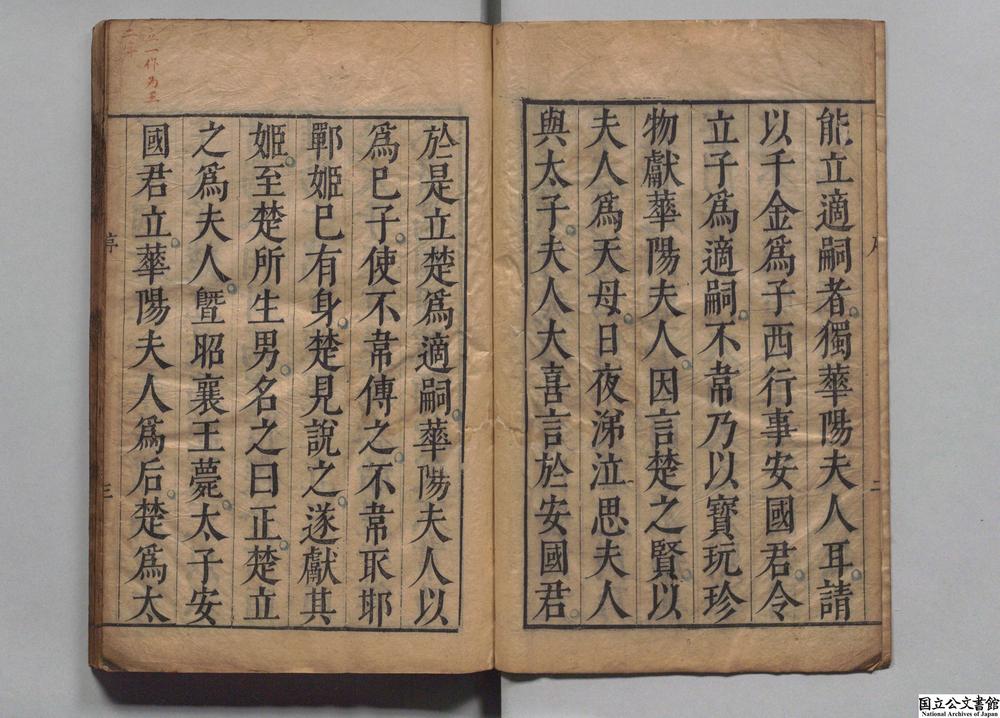 能立適嗣者獨華陽夫人耳請
以千金爲子西行事安國君令
立子爲適嗣不韋乃以寶玩珍
物獻華陽夫人因言楚之賢以
夫人爲天母日夜涕泣思夫人
與太子夫人大喜言於安國君
於是立楚爲適嗣華陽夫人以
爲己子使不韋傅之不韋取邯
鄲姬已有身楚見說之遂獻其
姬至楚所生男名之曰正楚立
之爲夫人暨昭襄王薨太子安
國君立華陽夫人爲后楚爲太
二
三
一作爲王
国立公文書館
National Archives of Japan